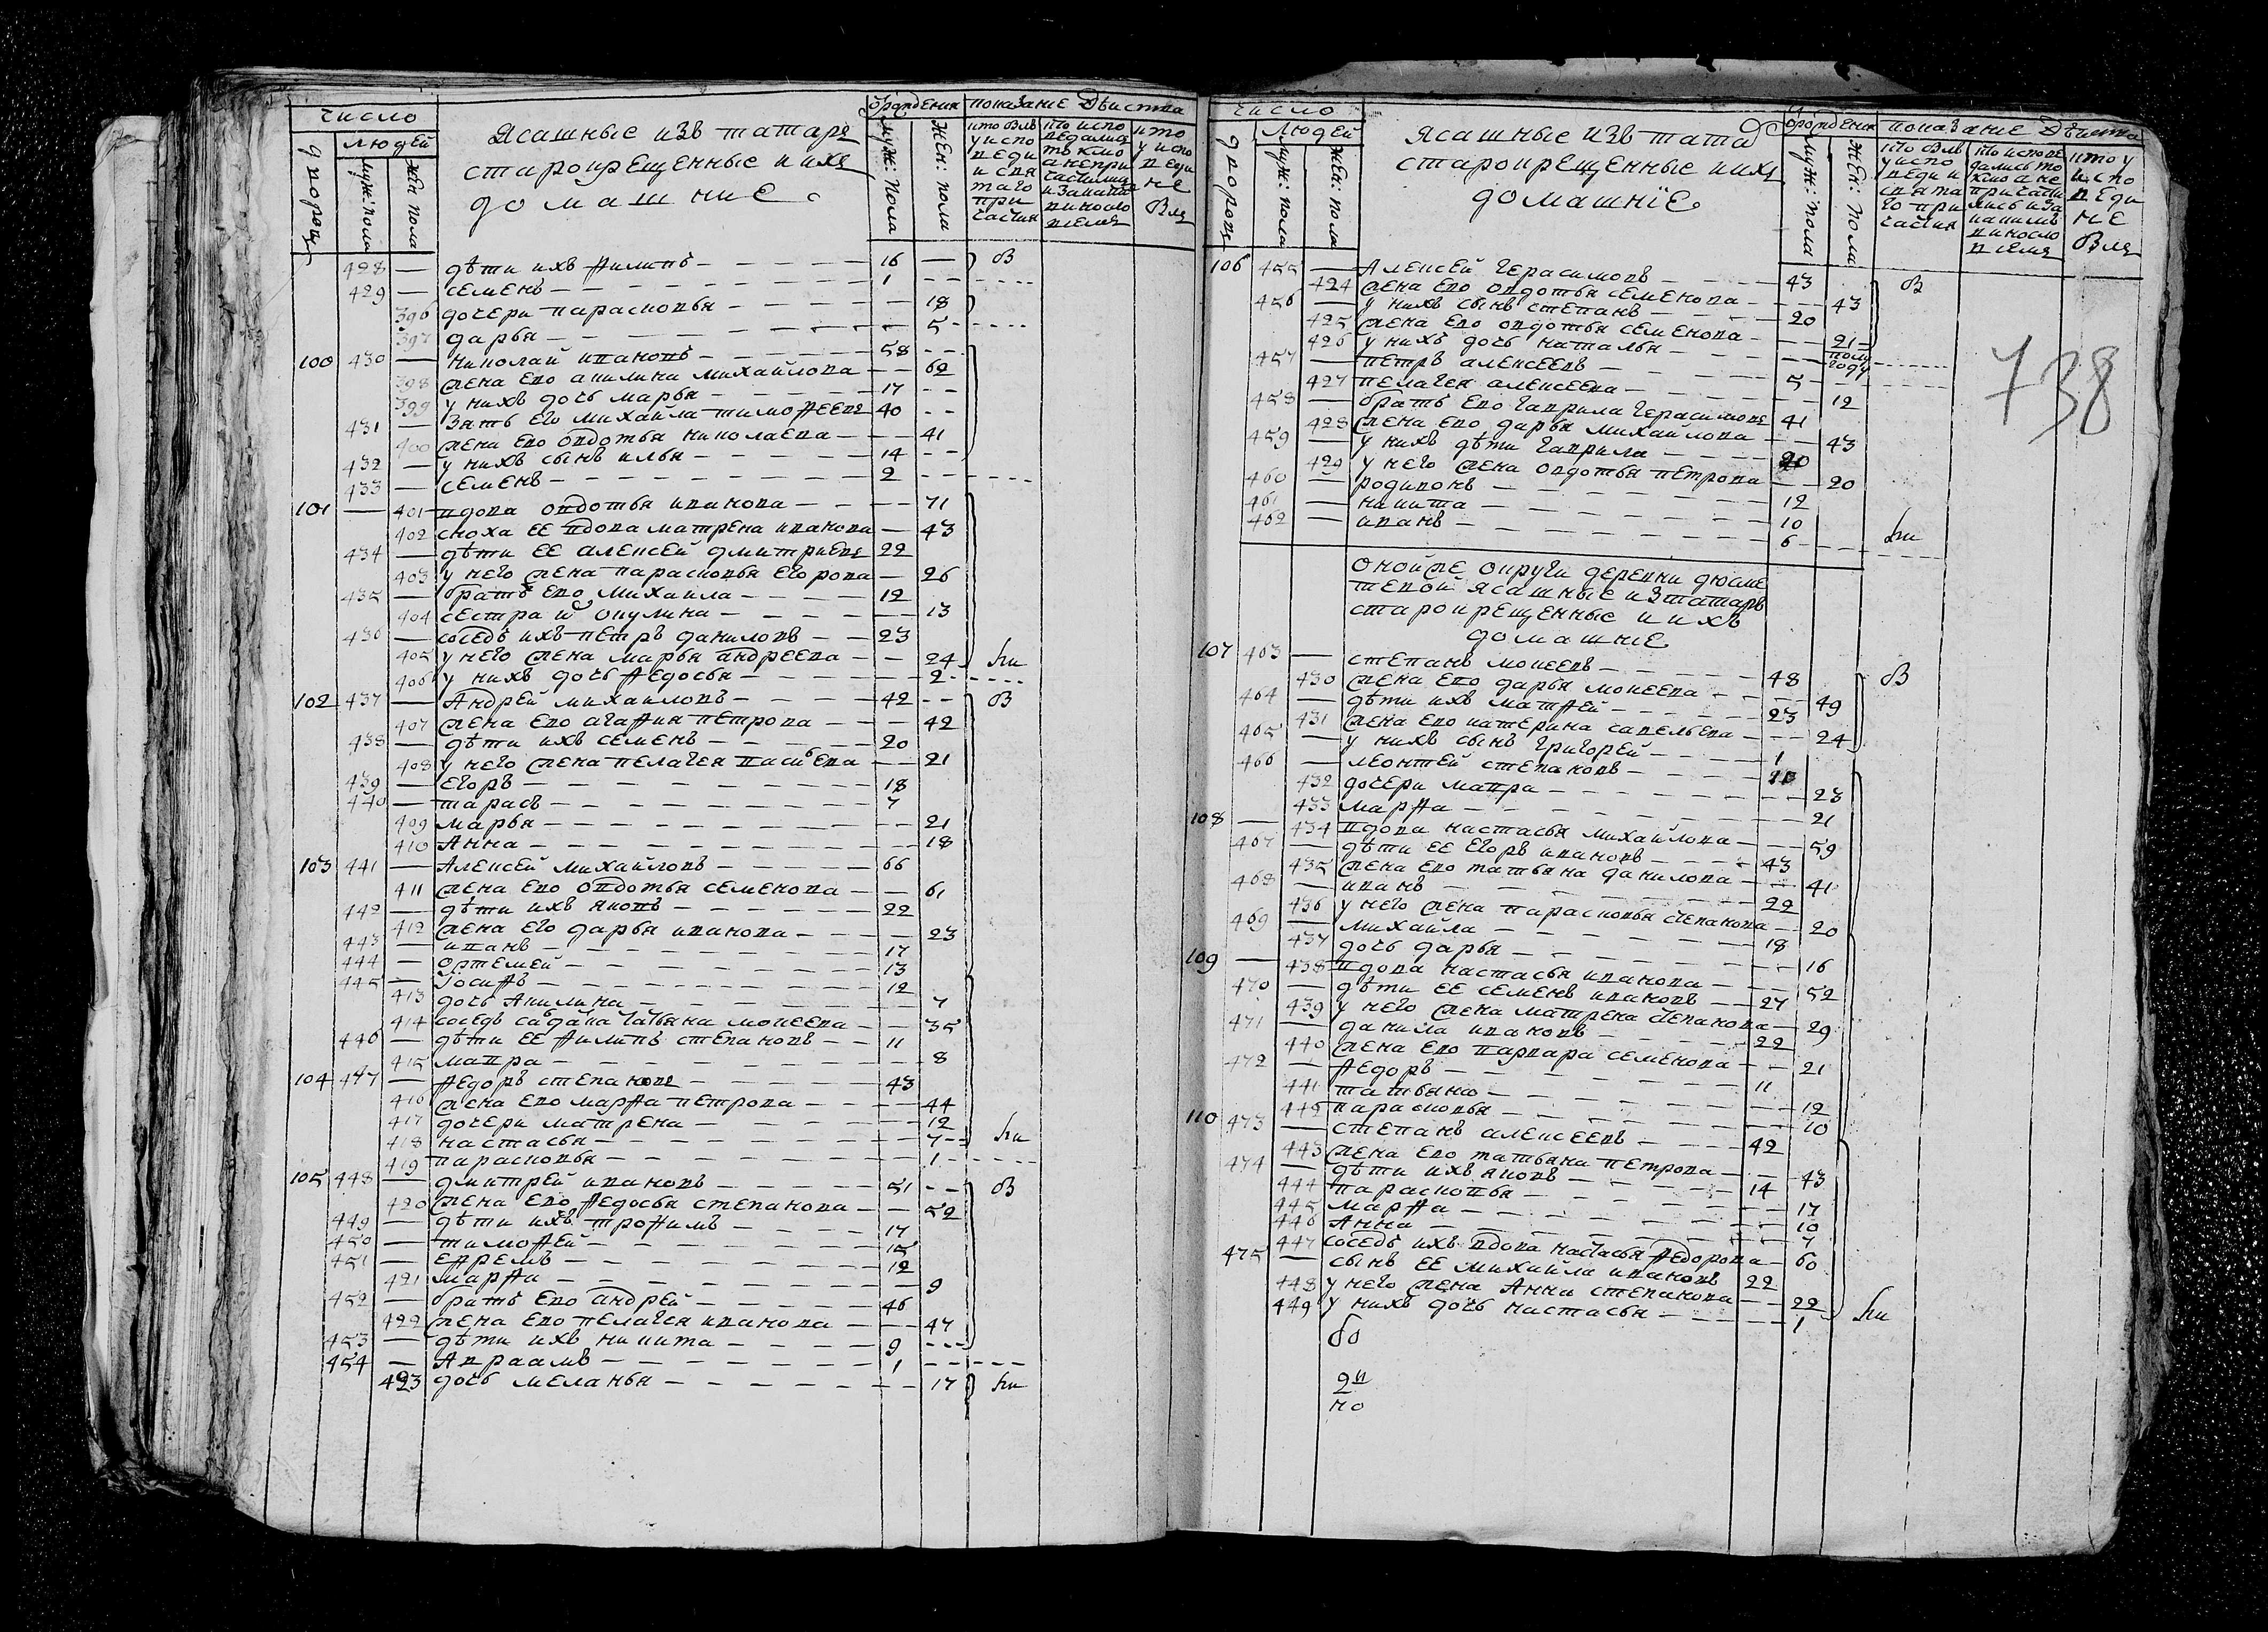 число
людей
дворовъ
муж: пола
жен: пола
Ясашные изъ татаръ
старокрещенные и ихъ
домашние
отрождения
муж: пола
жен: пола
показание действа
428 — дѣти ихъ филипъ — 16 — бы
429 — семенъ — 1
396 дочери парасковья — 18
397 дарья — 5
100 430 — николай ивановъ — 58
398 жена ево акилина михайлова — 62
399 у нихъ дочь марья — 17
431 — зять его михайла тимофеевъ 40
400 жена ево овдотья николаева — 41
432 — у нихъ сынъ илья — 14
433 — семенъ — 2
101 — 401 вдова овдотья иванова — 71
402 сноха ее вдова матрена иванова — 43
434 — дѣти ее алексей дмитриевъ 22
403 у него жена парасковья егорова — 26
435 — братъ ево михайла — 12
404 сестра и окулина — 13
436 — соседъ ихъ петръ даниловъ — 23
405 у него жена марья андреева — 24
406 у нихъ дочь федосья — 2
102 437 — Андрей михаиловъ — 42 бы
407 жена ево агафия петрова — 42
438 — дѣти ихъ семенъ — 20
408 у него жена пелагея васильева — 21
439 — егоръ — 18
440 — тарасъ — 7
409 марья — 21
410 Анна — 18
103 441 — Алексей михайловъ — 66
411 жена ево овдотья семенова — 61
442 — дѣти ихъ яковъ — 22
412 жена его дарья иванова — 23
443 — иванъ — 17
444 — ортемей — 13
445 — Іосифъ — 12
413 дочь Акилина — 7
414 соседъ татьяна моисеева — 35
446 — дѣти ее филипъ степановъ — 11
415 мавра — 8
104 447 — федоръ степановъ — 43
416 жена ево марфа петрова — 44
417 дочери матрена — 12
418 настасья — 7
419 парасковья — 1
105 448 — дмитрей ивановъ — 51 бы
420 жена ево федосья степанова — 52
449 — дѣти ихъ трофимъ — 17
450 — тимофей — 15
451 — ефремъ — 12
421 марфа — 9
452 — братъ ево андрей — 46
422 жена ево пелагея иванова — 47
453 — дѣти ихъ никита — 9
454 — Авраамъ — 1
423 дочь меланья — 17
число
людей
дворовъ
муж: пола
жен: пола
Ясашные изъ татаръ
старокрещенные и ихъ
домашніе
отрождения
муж: пола
жен: пола
показание действа
738
106 455 — Алексей герасимовъ — 43 бы
424 жена ево овдотья семенова — 43
456 — у нихъ сынъ степанъ — 20
425 жена ево овдотья семенова — 21
426 у нихъ дочь наталья — полу году
457 — петръ алексеевъ — 5
427 пелагея алексеева — 12
458 — братъ ево гаврила герасимовъ 41
428 жена ево дарья михайлова — 43
459 — у нихъ дѣти гаврила — 20
429 у него жена овдотья петрова — 20
460 — родионъ — 12
461 — никита — 10
462 — иванъ — 6
оной же округи деревни дюсме
тевой ясашные из татаръ
старокрещенные и ихъ
домашние
107 463 — степанъ моисеевъ — 48 бы
430 жена ево дарья моисеева — 49
464 — дѣти ихъ матфей — 23
431 жена ево катерина савельева — 24
465 — у нихъ сынъ григорей — 1
466 — леонтей степановъ
432 дочери мавра — 23
433 марфа — 21
108 — 434 вдова настасья михайлова — 59
467 — дѣти ее егоръ ивановъ — 43
435 жена ево татьяна данилова — 41
468 — иванъ — 22
436 у него жена парасковья степанова — 20
469 — михайла — 18
437 дочь дарья — 16
109 — 438 вдова настасья иванова — 52
470 — дѣти ее семенъ ивановъ — 27
439 у него жена матрена степанова — 29
471 — данила ивановъ — 22
440 жена ево варвара семенова — 21
472 — федоръ — 11
441 татьяна — 12
442 парасковья — 10
110 473 — степанъ алексеевъ — 42
443 жена ево татьяна петрова — 43
474 — дѣти ихъ яковъ — 14
444 парасковья — 17
445 марфа — 10
446 Анна — 7
447 соседъ ихъ вдова настасья федорова — 60
475 — сынъ ее михайла ивановъ 22
448 у него жена Анна степанова — 22
449 у нихъ дочь настасья — 1